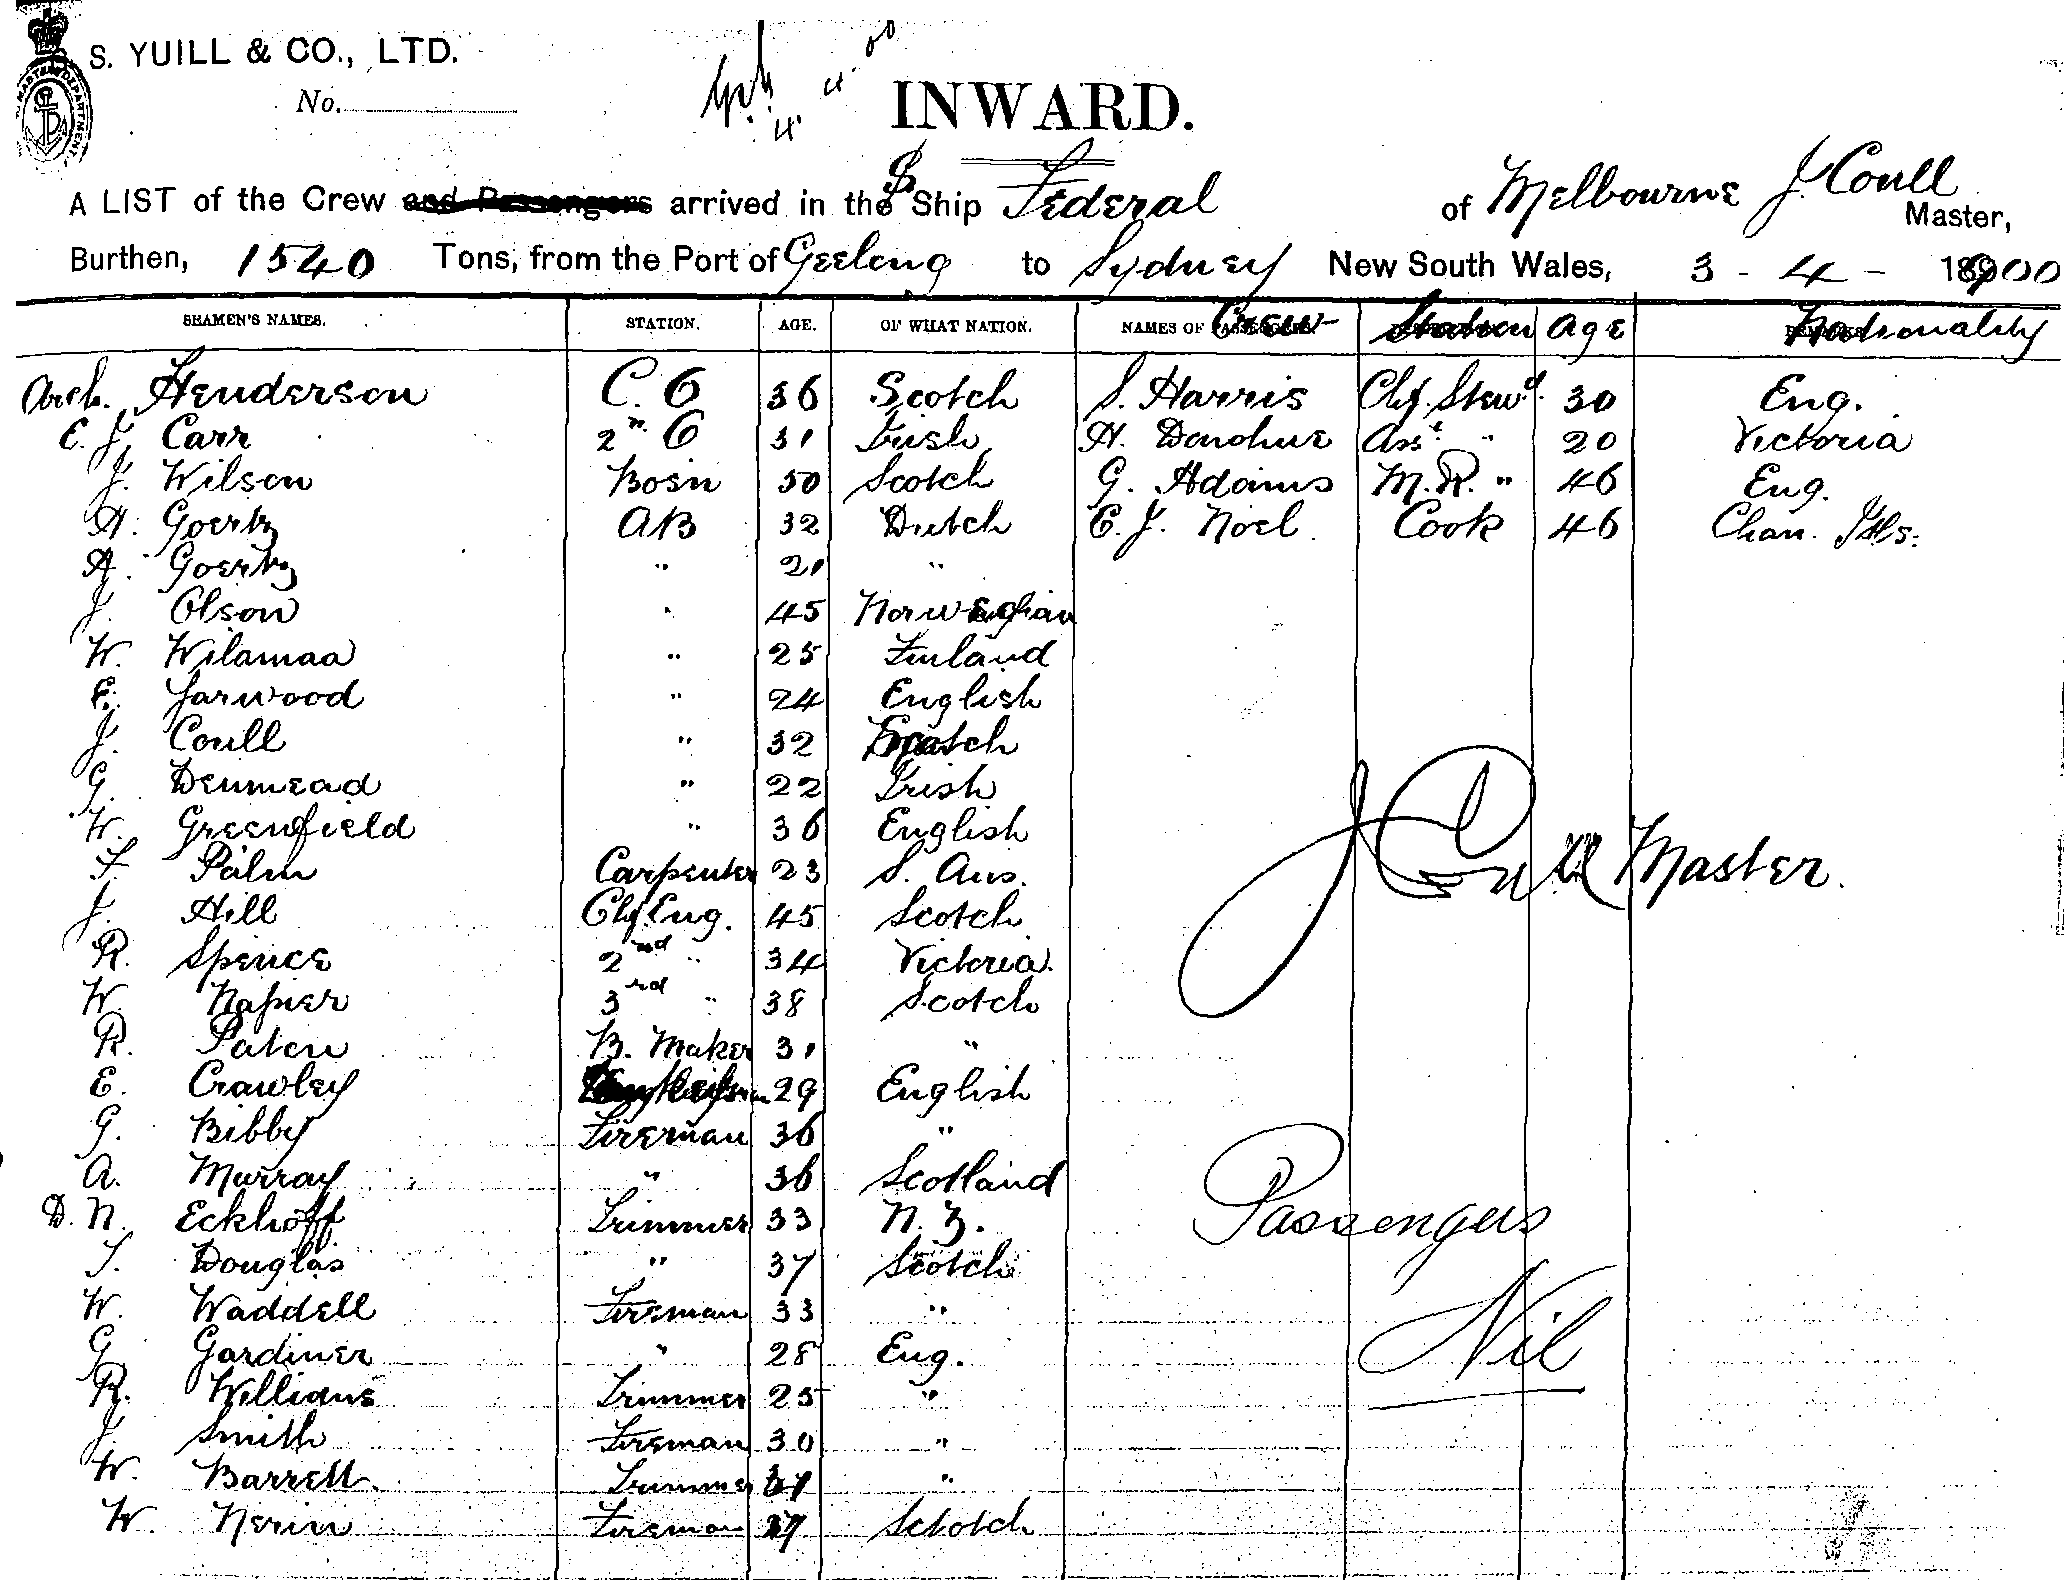 S. YUILL & CO., LTD.
No.
4. 00
4.
INWARD.
A LIST of the Crew and Passengers arrived in the S Ship Federal of Melbourne J. Coull Master,
Burthen, 1540 Tons, from the Port of Geelong to Sydney New South Wales, 3 - 4 - 1900
SEAMEN'S NAMES. STATION. AGE. OF WHAT NATION. NAMES OF PASSENGERS. Crew Station Age Nationality
Arch. Henderson C. O 36 Scotch S. Harris Chf. Stewd. 30 Eng.
C. J. Carr 2n. O 31 Irish H. Donohue Asst. " 20 Victoria
J. Wilson Bosn 50 Scotch G. Adams M.R. " 46 Eng.
H. Goertz AB 32 Dutch C. J. Noel. Cook 46 Chan. Isls.
A. Goertz " 21 "
J. Olson " 45 Norwegian
W. Wilamaa " 25 Finland
E. Yarwood " 24 English
J. Coull " 32 Scotch
G. Denmead " 22 Irish
W. Greenfield " 36 English
F. Palm Carpenter 23 S. Aus.
J. Hill Chf Eng. 45 Scotch
R. Spence 2nd " 34 Victoria.
W Napier 3rd " 38 Scotch
R. Paton B. Maker 31 "
E. Crawley 29 English
G. Bibby Fireman 36 "
A. Murray " 36 Scotland
D. N. Eckhoff Trimmer 33 N. Z.
T. Douglas " 37 Scotch
W. Waddell Fireman 33 "
G Gardiner " 28 Eng.
R. Williams Trimmer 25 "
J. Smith Fireman 30 "
W. Barrett. Trimmer "
W. Nerin Fireman Sctotch
J Coull Master.
Passengers
Nil